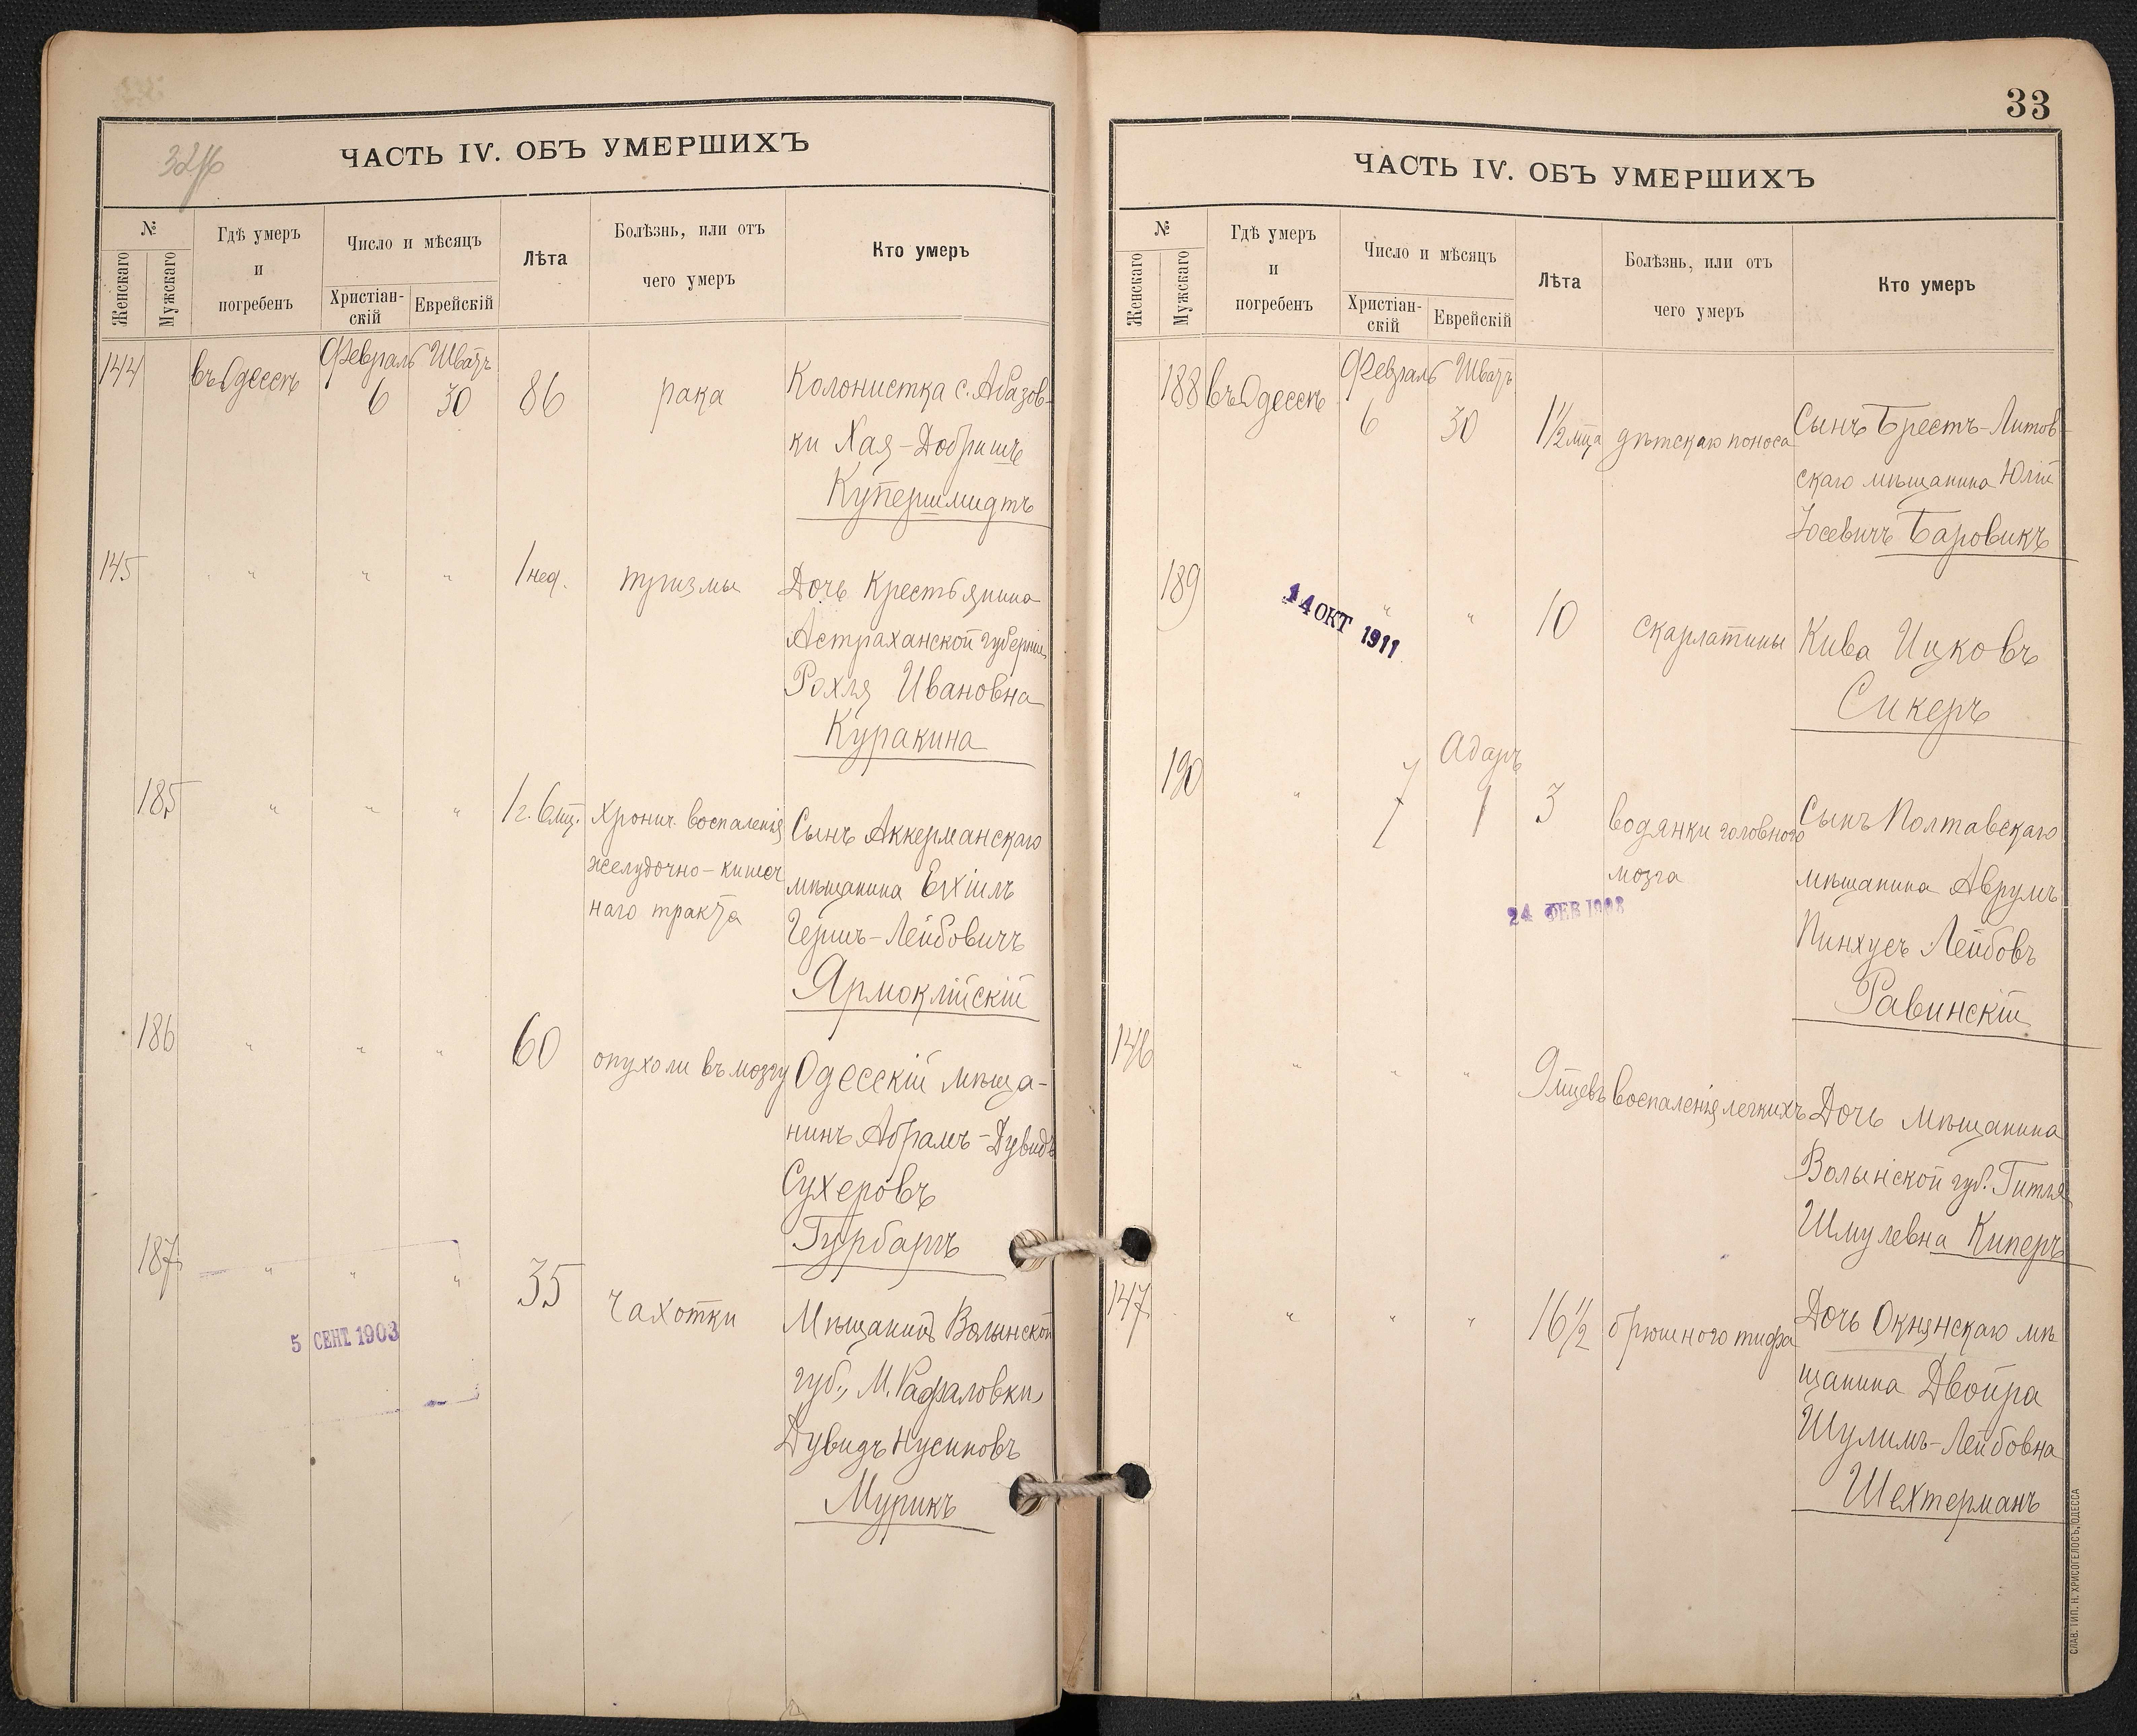 32
ЧАСТЬ IV. ОБЪ УМЕРШИХЪ
№
Женскаго
Мужскаго
Гдѣ умеръ
и
погребенъ
Число и мѣсяцъ
Христіан-
скій
Еврейскій
Лѣта
Болѣзнь, или отъ
чего умеръ
Кто умеръ
144 въ Одессѣ Февраль 6 Шватъ 30 86 рака Колонистка с. Абазов-
ки Хая-Добришъ
Купершмидтъ
145 " " " 1 нед. Дочь Крестьянина
Астраханской губерніи
Рохля Ивановна
Куракина
185 " " " 1 г. 6 мц. хронич. воспаленія Сынъ Аккерманскаго
желудочно-кишеч мѣщанина Ехіилъ
наго тракта Гершъ-Лейбовичъ
Ярмоклійскій
186 " " " 60 опухоли въ мозгу Одесскій мѣща-
нинъ Абрамъ-Дувидъ
Сухеровъ
Гурбаръ
187 " " " 35 чахотки Мѣщанинъ Волынской
5 СЕНТ. 1903
губ., М. Рафаловки,
Дувидъ Нусиновъ
Мурикъ
33
ЧАСТЬ IV. ОБЪ УМЕРШИХЪ
№
Женскаго
Мужскаго
Гдѣ умеръ
и
погребенъ
Число и мѣсяцъ
Христіан-
скій
Еврейскій
Лѣта
Болѣзнь, или отъ
чего умеръ
Кто умеръ
188 въ Одессѣ Февраль 6 Шватъ 30 1½ мца дѣтскаго поноса Сынъ Брестъ-Литов-
скаго мѣщанина Юлій
Іосевичъ Баровикъ
189 " " 10 скарлатины Кива Ицковъ
14 ОКТ 1911
Сикеръ
190 " 7 Адаръ 1 3 водянки головного Сынъ Полтавскаго
мозга мѣщанина Аврумъ
24 ФЕВ 1903
Пинхусъ Лейбовъ
Равинскій
146 " " " 9 мцевъ воспаленія легкихъ Дочь мѣщанина
Волынской губ. Гитля
Шмулевна Киперъ
147 " " " 16½ брюшного тифа Дочь Окнянскаго мѣ
щанина Двойра
Шулимъ-Лейбовна
Шехтерманъ
СЛАВ. ТИП. Н. ХРИСОГЕЛОСЪ, ОДЕССА